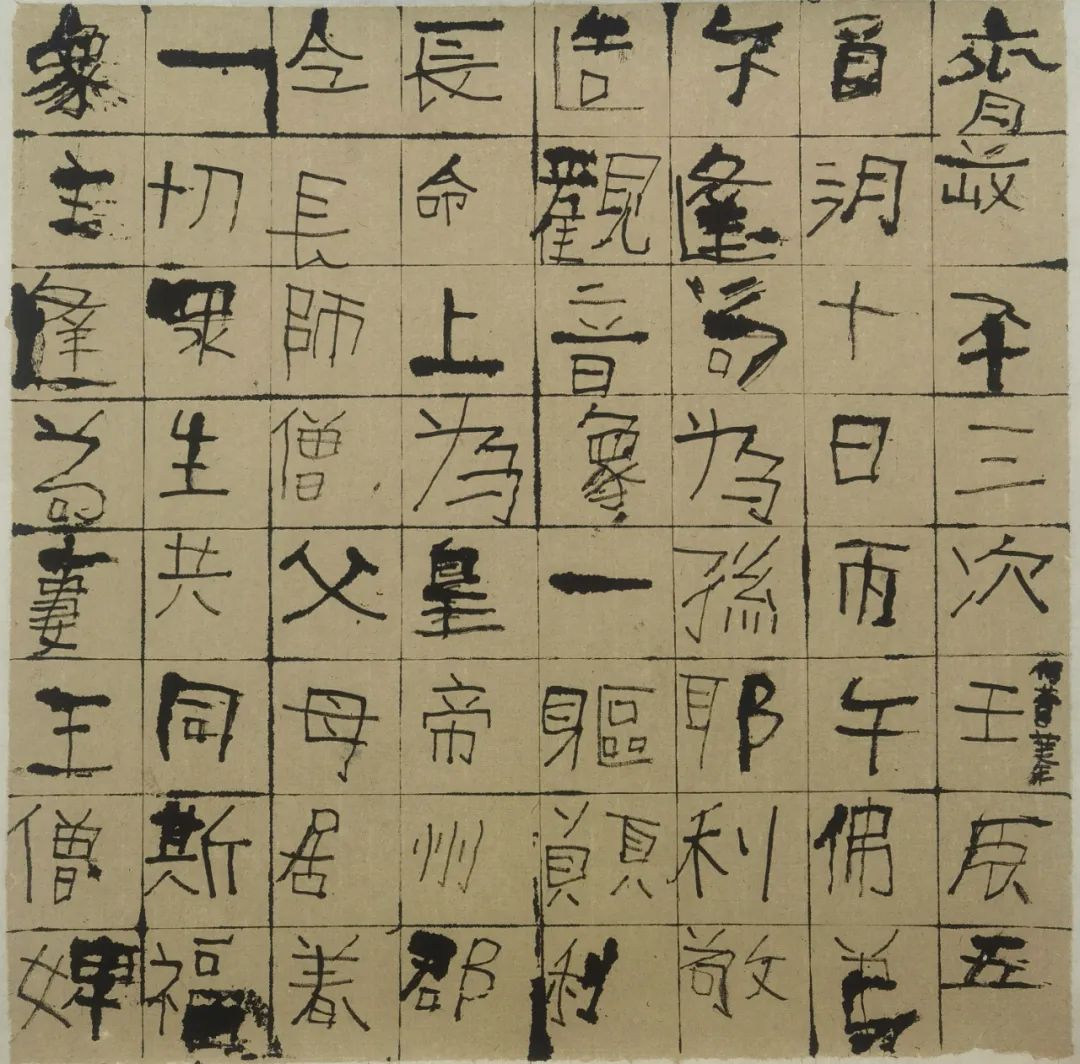 齊武平三次壬辰五
月朔十日丙午佛弟
子逢苟為孫耶利敬
造觀音象一軀願利
長命上為皇帝州郡
令長師僧父母居眷
一切眾生共同斯福
象主逢苟妻王僧婢